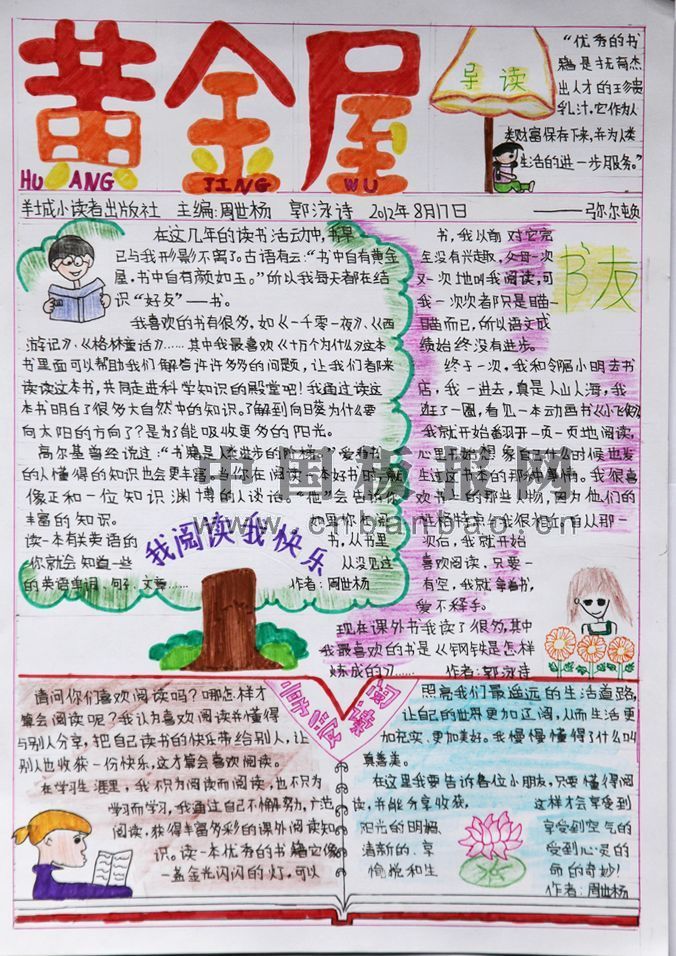 黄金屋
HUANG JING WU
导读
“优秀的书
籍是抚育杰
出人才的珍贵
乳汁,它作为人
类财富保存下来,并为人类
生活的进一步服务。”
——弥尔顿
羊城小读者出版社 主编:周世杨 郭泳诗 2012年8月17日
在这几年的读书活动中,书早
已与我形影不离了。古语有云:“书中自有黄金
屋,书中自有颜如玉。”所以我每天都在结
识“好友”——书。
我喜欢的书有很多,如《一千零一夜》、《西
游记》、《格林童话》……其中我最喜欢《十万个为什么》这本
书里面可以帮助我们解答许许多多的问题,让我们都来
读读这本书,共同走进科学知识的殿堂吧!我通过读这
本书明白了很多大自然中的知识。了解到向日葵为什么要
向太阳的方向了?是为了能吸收更多的阳光。
高尔基曾经说过:“书籍是人类进步的阶梯。”爱看书
的人懂得的知识也会更丰富。
像正和一位知识渊博的人谈话,他会告诉你
丰富的知识。
读一本有关英语的书,从书里
你就会知道一些从没见过
的英语单词、句子、文章…… 作者:周世杨
我阅读我快乐
书友
书,我以前对它完
全没有兴趣,父母一次
又一次地叫我阅读,可
我一次次都只是瞄一
瞄而已,所以语文成
绩始终没有进步。
终于一次,我和邻居小明去书
店,我一进去,真是人山人海,我
逛了一圈,看见一本动画书《小飞侠》
我就开始翻开一页一页地阅读,
心里开始想象自己什么时候也发
生这本书的那份事情。我很喜
欢书中的那些人物,因为他们的
性格特点和我很相近,自从那一
次后,我就开始
喜欢阅读,只要一
有空,我就拿着书,
爱不释手。
现在课外书我读了很多,其中
我最喜欢的书是《钢铁是怎样
炼成的》…… 作者:郭泳诗
阅读
请问你们喜欢阅读吗?哪怎样才
算会阅读呢?我认为喜欢阅读并懂得
与别人分享,把自己读书的快乐带给别人,让
别人也收获一份快乐,这才算会喜欢阅读。
在学习生涯里,我不只为阅读而阅读,也不只为
学习而学习,我通过自己不懈努力,广范
阅读,获得丰富多彩的课外阅读知
识。读一本优秀的书籍它像
一盏金光闪闪的灯,可以
照亮我们最遥远的生活道路,
让自己的世界更加辽阔,从而生活更
加充实、更加美好。我慢慢懂得了什么叫
真善美。
在这里我要告诉各位小朋友,只要懂得阅
读,并能分享收获,这样才会享受到
阳光的明媚、享受到空气的
清新的、享受到心灵的
愉悦和生命的奇妙!
作者:周世杨
中国板报网
www.cnbanbao.cn